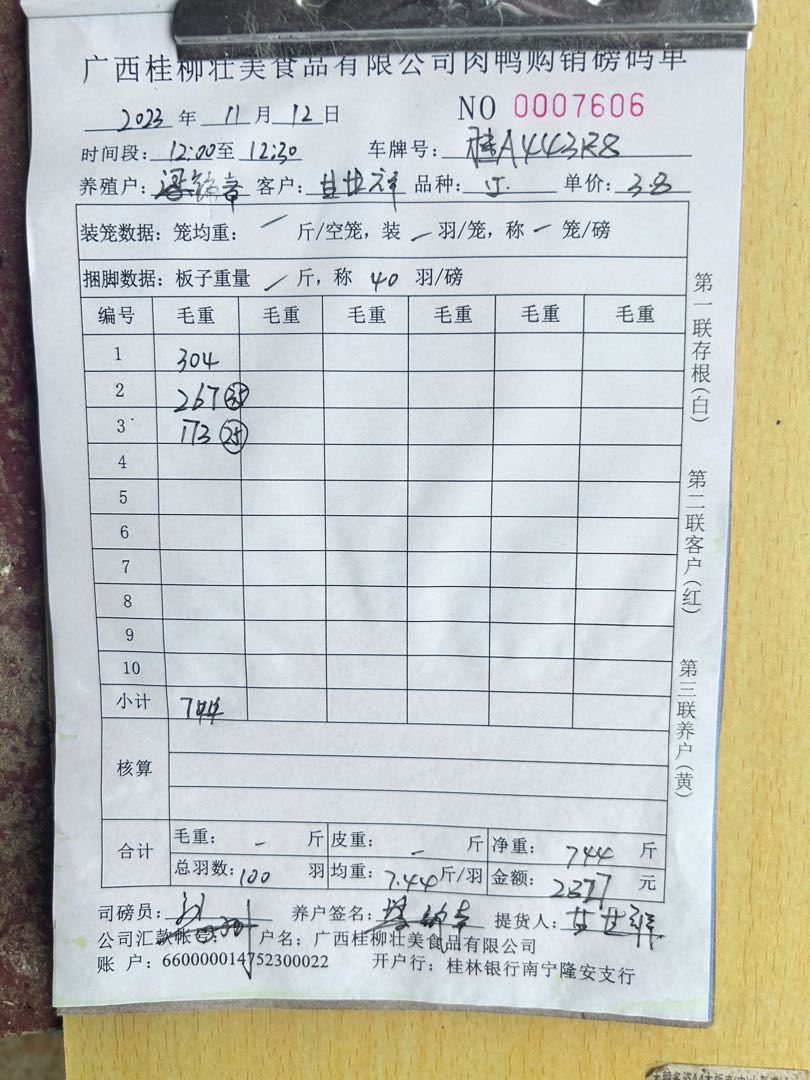 广西桂柳壮美食品有限公司肉鸭购销磅码单
2023 年 11 月 12 日 NO 0007606
时间段: 12:00至 12:30 车牌号: 桂A443R8
养殖户: 客户: 甘世祥 品种: 单价: 3.8
装笼数据: 笼均重: — 斤/空笼, 装 — 羽/笼, 称 — 笼/磅
捆脚数据: 板子重量 — 斤, 称 40 羽/磅
编号 毛重 毛重 毛重 毛重 毛重 毛重
1 304
2 267 35
3 173 25
4
5
6
7
8
9
10
小计 744
核算
合计 毛重: — 斤 皮重: — 斤 净重: 744 斤
总羽数: 100 羽 均重: 7.44 斤/羽 金额: 元
司磅员: 养户签名: 提货人: 甘世祥
公司汇款帐 户名: 广西桂柳壮美食品有限公司
账 户: 660000014752300022 开户行: 桂林银行南宁隆安支行
第一联存根(白)
第二联客户(红)
第三联养户(黄)